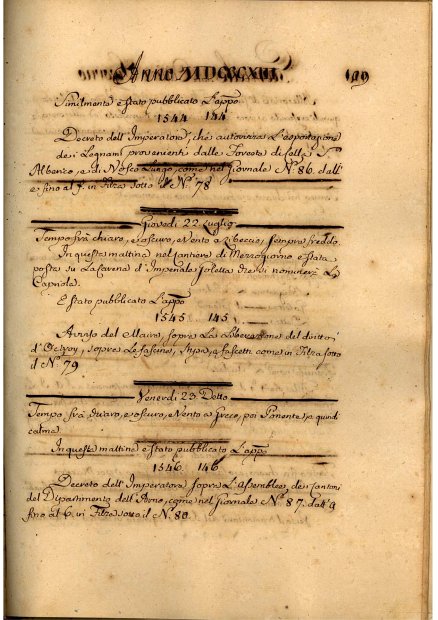 Anno MDCCCXIII.
189
Similmente è stato pubblicato L'appo
1544 144
Decreto dell'Imperatore, che autorizza L'esportazione
dei Legnami provenienti dalle Foreste di
Alberico, e di Nosco Lungo, come nel Giornale N.º 86. dall'
e fino al f. in Filza sotto il N.º 78
Giovedì 22 Luglio
Tempo frà chiaro, e oscuro, e Vento a Libeccio, sempre freddo.
In questa mattina nel Cantiere di Mezzogiorno è stata
posta su La Carena d'Imperiale Goletta che si nominerà La
Capriole.
E stato pubblicato L'appo
1545 145
Avviso del Maire, sopra La Liberazione dei diritti
d'Octroy, sopra Le fascine, Stipa, e fascetti come in Filza sotto
il N.º 79.
Venerdì 23 Detto
Tempo frà chiaro, e oscuro, e Vento a Greco, poi Ponente, e quindi
calma.
In questa mattina è stato pubblicato L'appo
1546 146
Decreto dell'Imperatore sopra L'Assemblee, dei Cantoni
del Dipartimento dell'Arno, come nel Giornale N.º 87. dall' 9
fino al 6. in Filza sotto il N.º 80